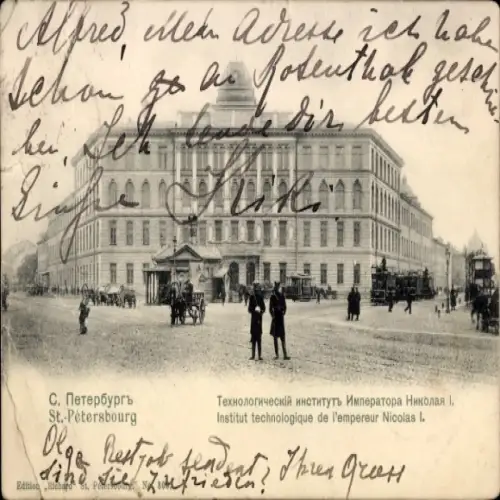 Alfred, Mein Adresse ich habe
schon an Rosenthal geschrie
bei, Ich sende dir besten
Grüsse
С. Петербургъ
St.-Pétersbourg
Технологическій институтъ Императора Николая I.
Institut technologique de l'empereur Nicolas I.
Olga sendent? Ihren Gruss
sind sie zufrieden?
Edition "Richard" St. Pétersbourg, No.